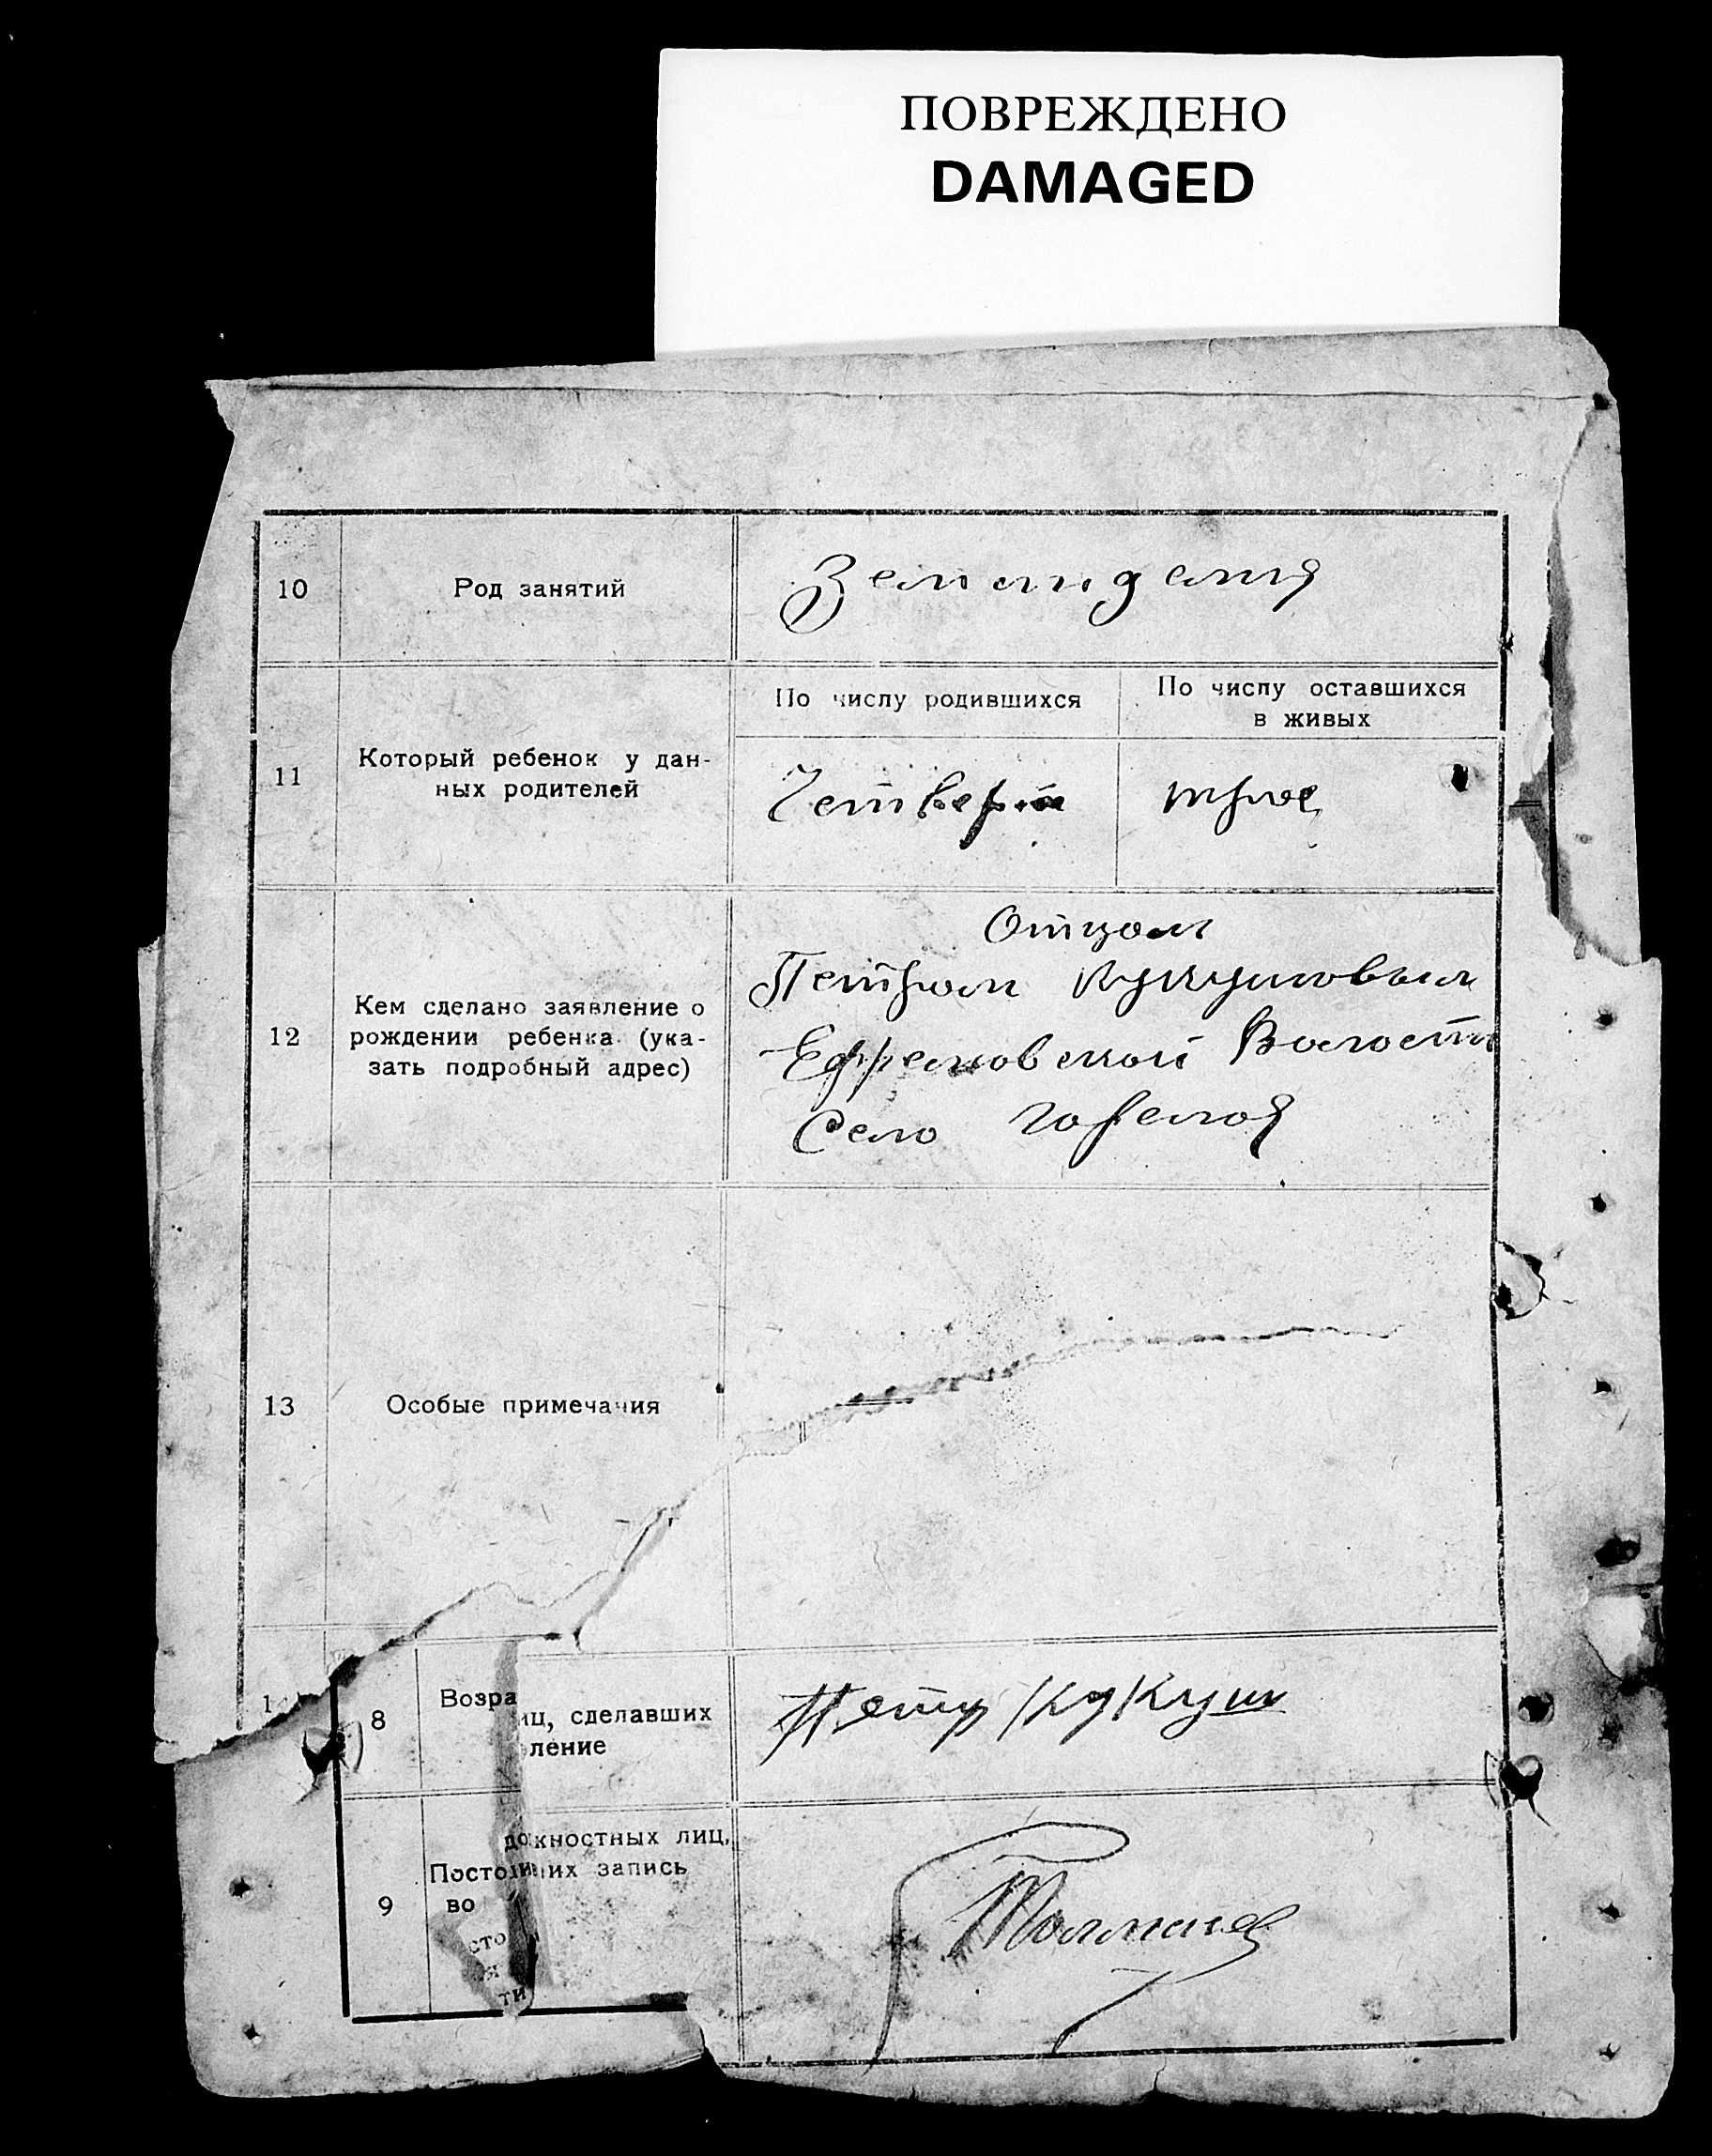 ПОВРЕЖДЕНО
DAMAGED
10 Род занятий
11 Который ребенок у дан-
ных родителей
По числу родившихся
По числу оставшихся
в живых
трое
12 Кем сделано заявление о
рождении ребенка (ука-
зать подробный адрес)
Отцом
Петром
Волости
Село
13 Особые примечания
8 Возра
иц, сделавших
ление
Петр Кукуш
9
должностных лиц,
Посто их запись
во
сто
я
ти